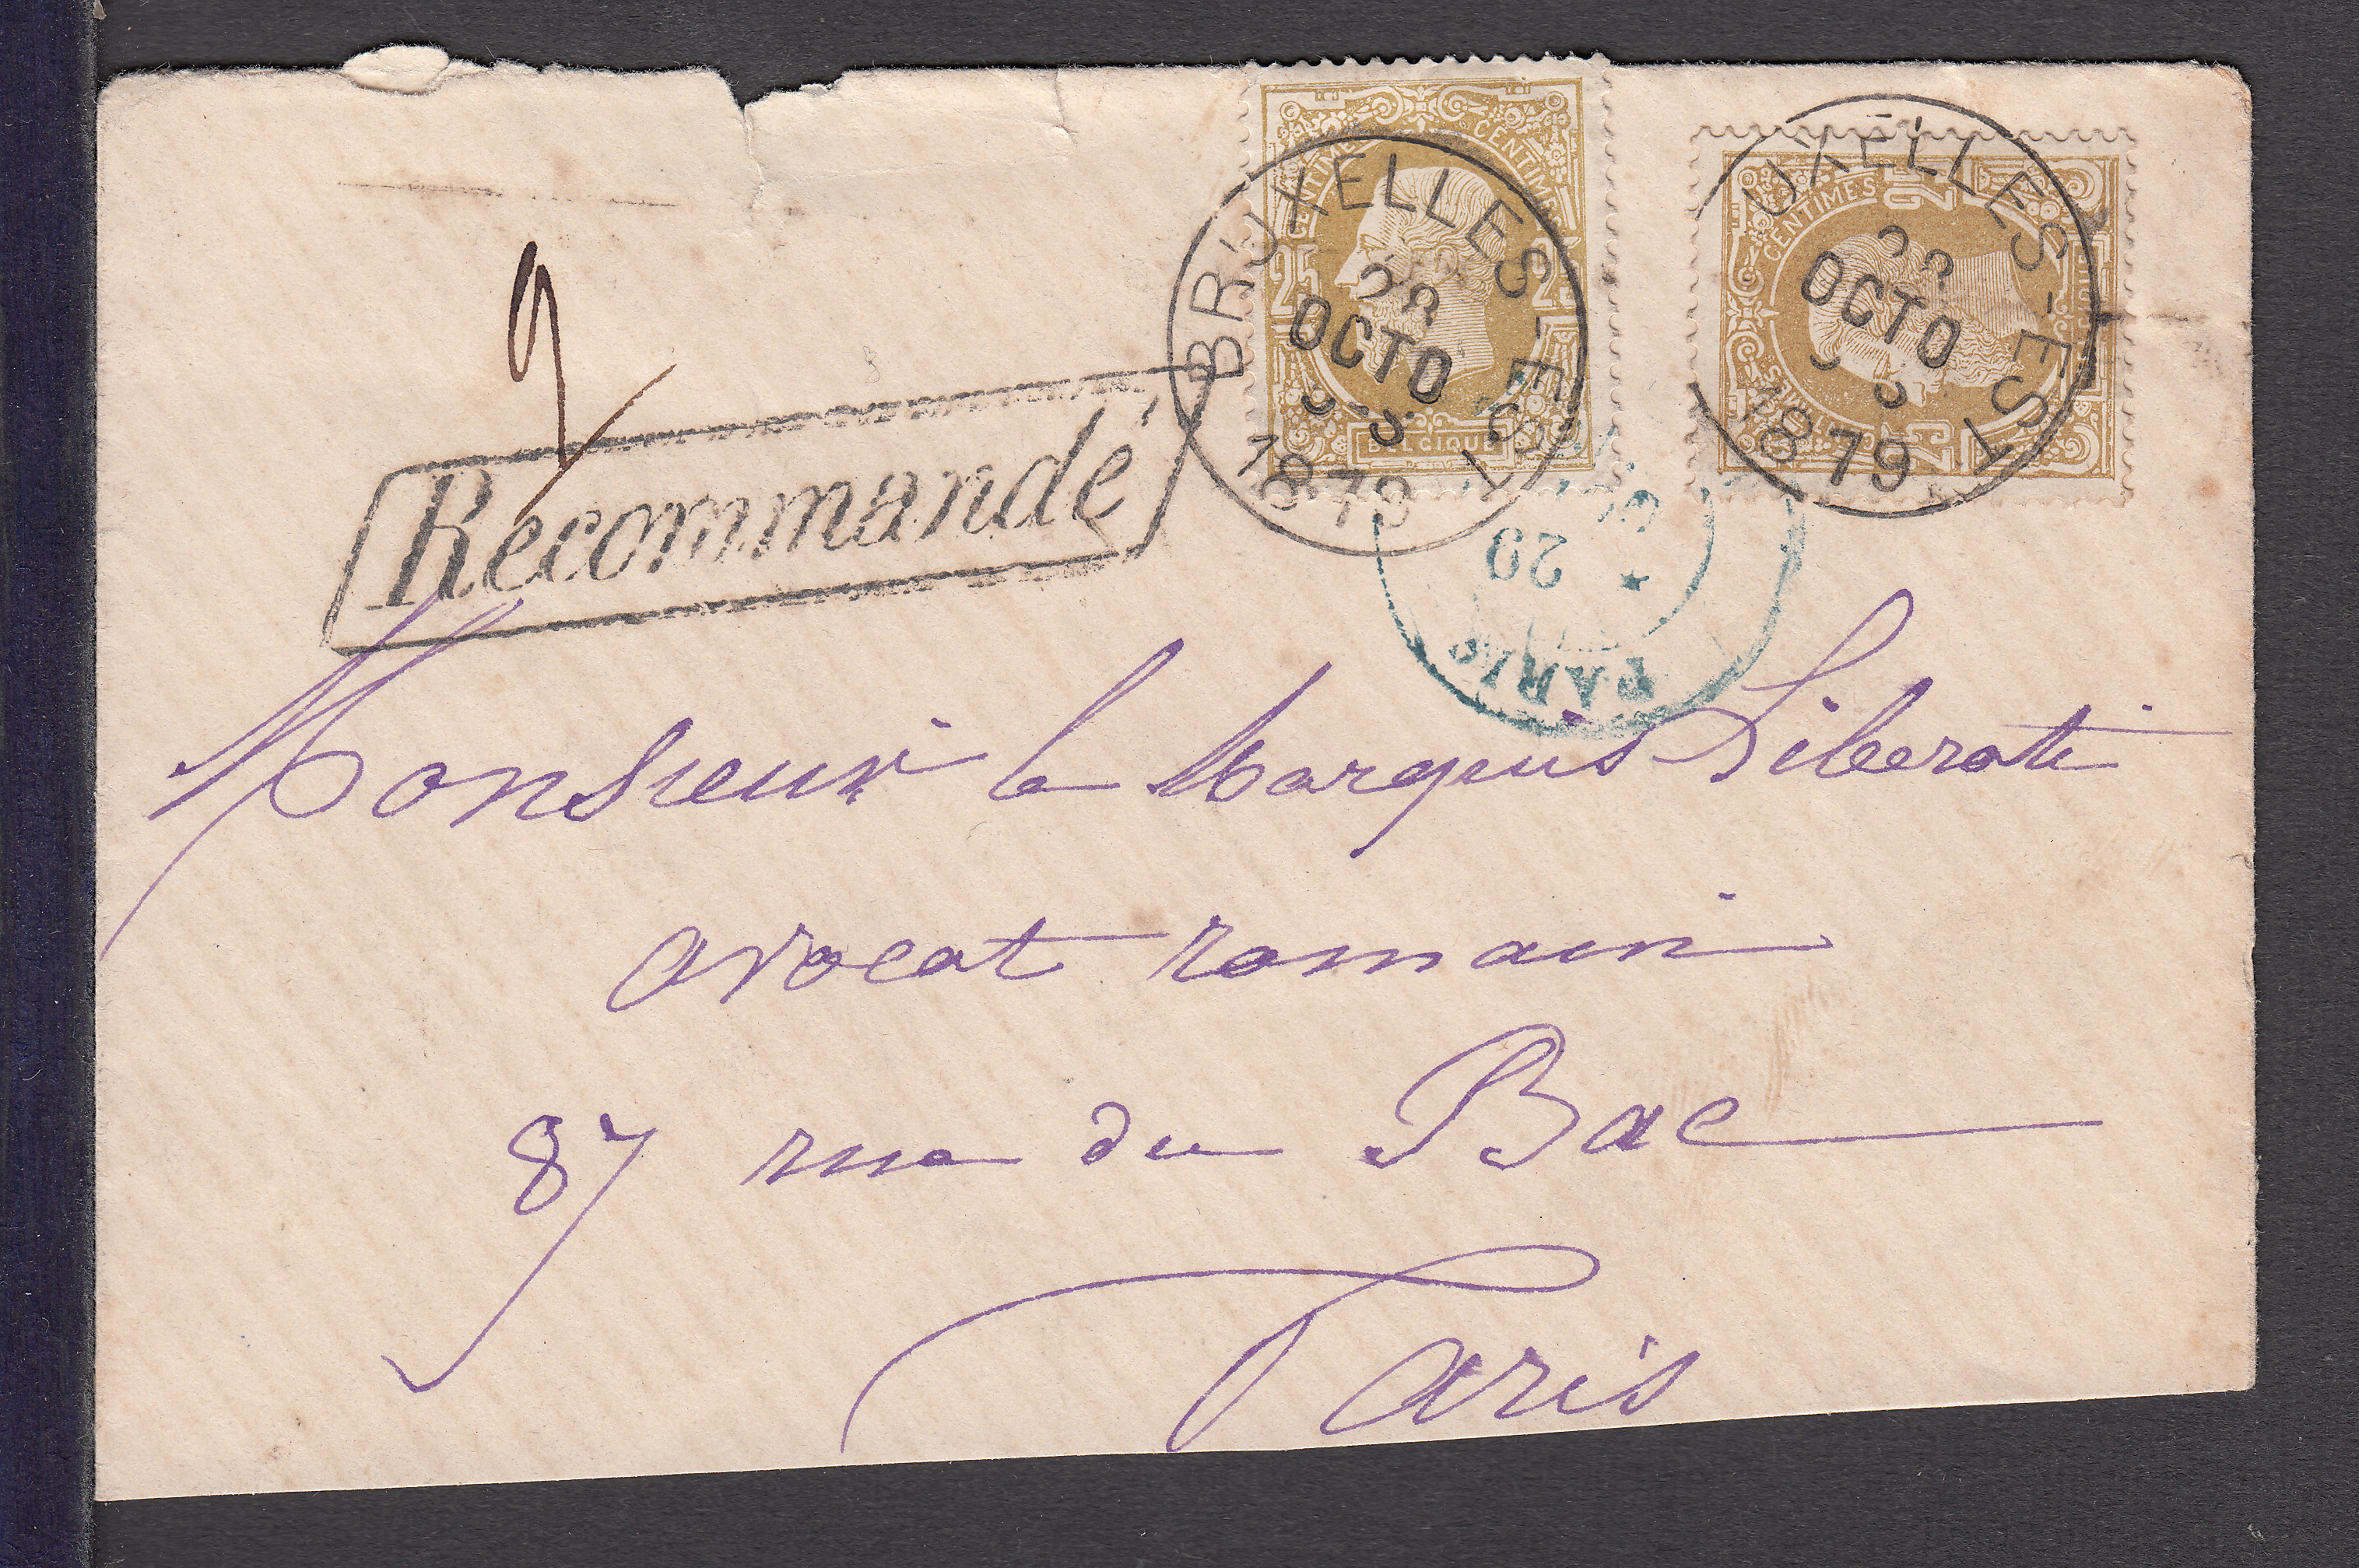 CENTIMES CENTIMES
25 25
BELGIQUE
BRUXELLES-EST
OCTO
1879
CENTIMES
25
UXELLES-EST
OCTO
1879
9
Recommandé
PARIS
* 29
Monsieur le Marquis Liberati
avocat romain
87 rue du Bac
Paris